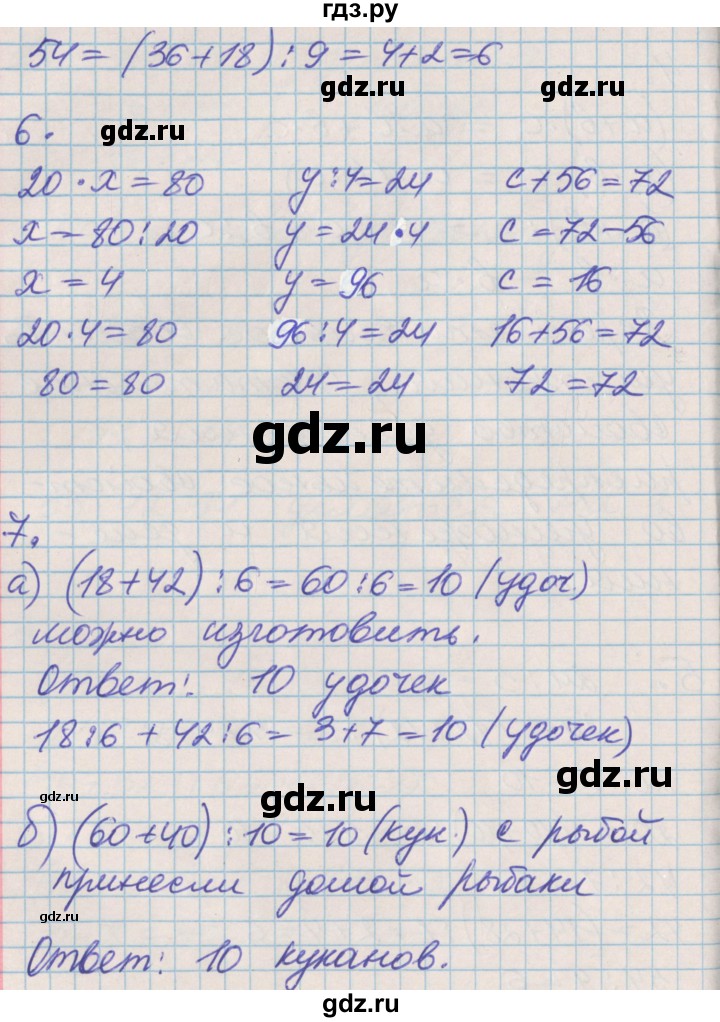 гдз.ру
54 = (36+18) : 9 = 4+2=6
gdz.ru gdz.ru
6.
gdz.ru
20 · x = 80 y : 4 = 24 c + 56 = 72
x = 80 : 20 y = 24 · 4 c = 72 - 56
x = 4 y = 96 c = 16
20 · 4 = 80 96 : 4 = 24 16 + 56 = 72
80 = 80 24 = 24 72 = 72
gdz.ru
7.
а) (18+42) : 6 = 60 : 6 = 10 (удоч.)
можно изготовить.
Ответ: 10 удочек
18 : 6 + 42 : 6 = 3+7 = 10 (удочек)
gdz.ru
gdz.ru
gdz.ru
б) (60+40) : 10 = 10 (кук.) с рыбой
принесли домой рыбаки
gdz.ru
Ответ: 10 куканов.
gdz.ru
gdz.ru